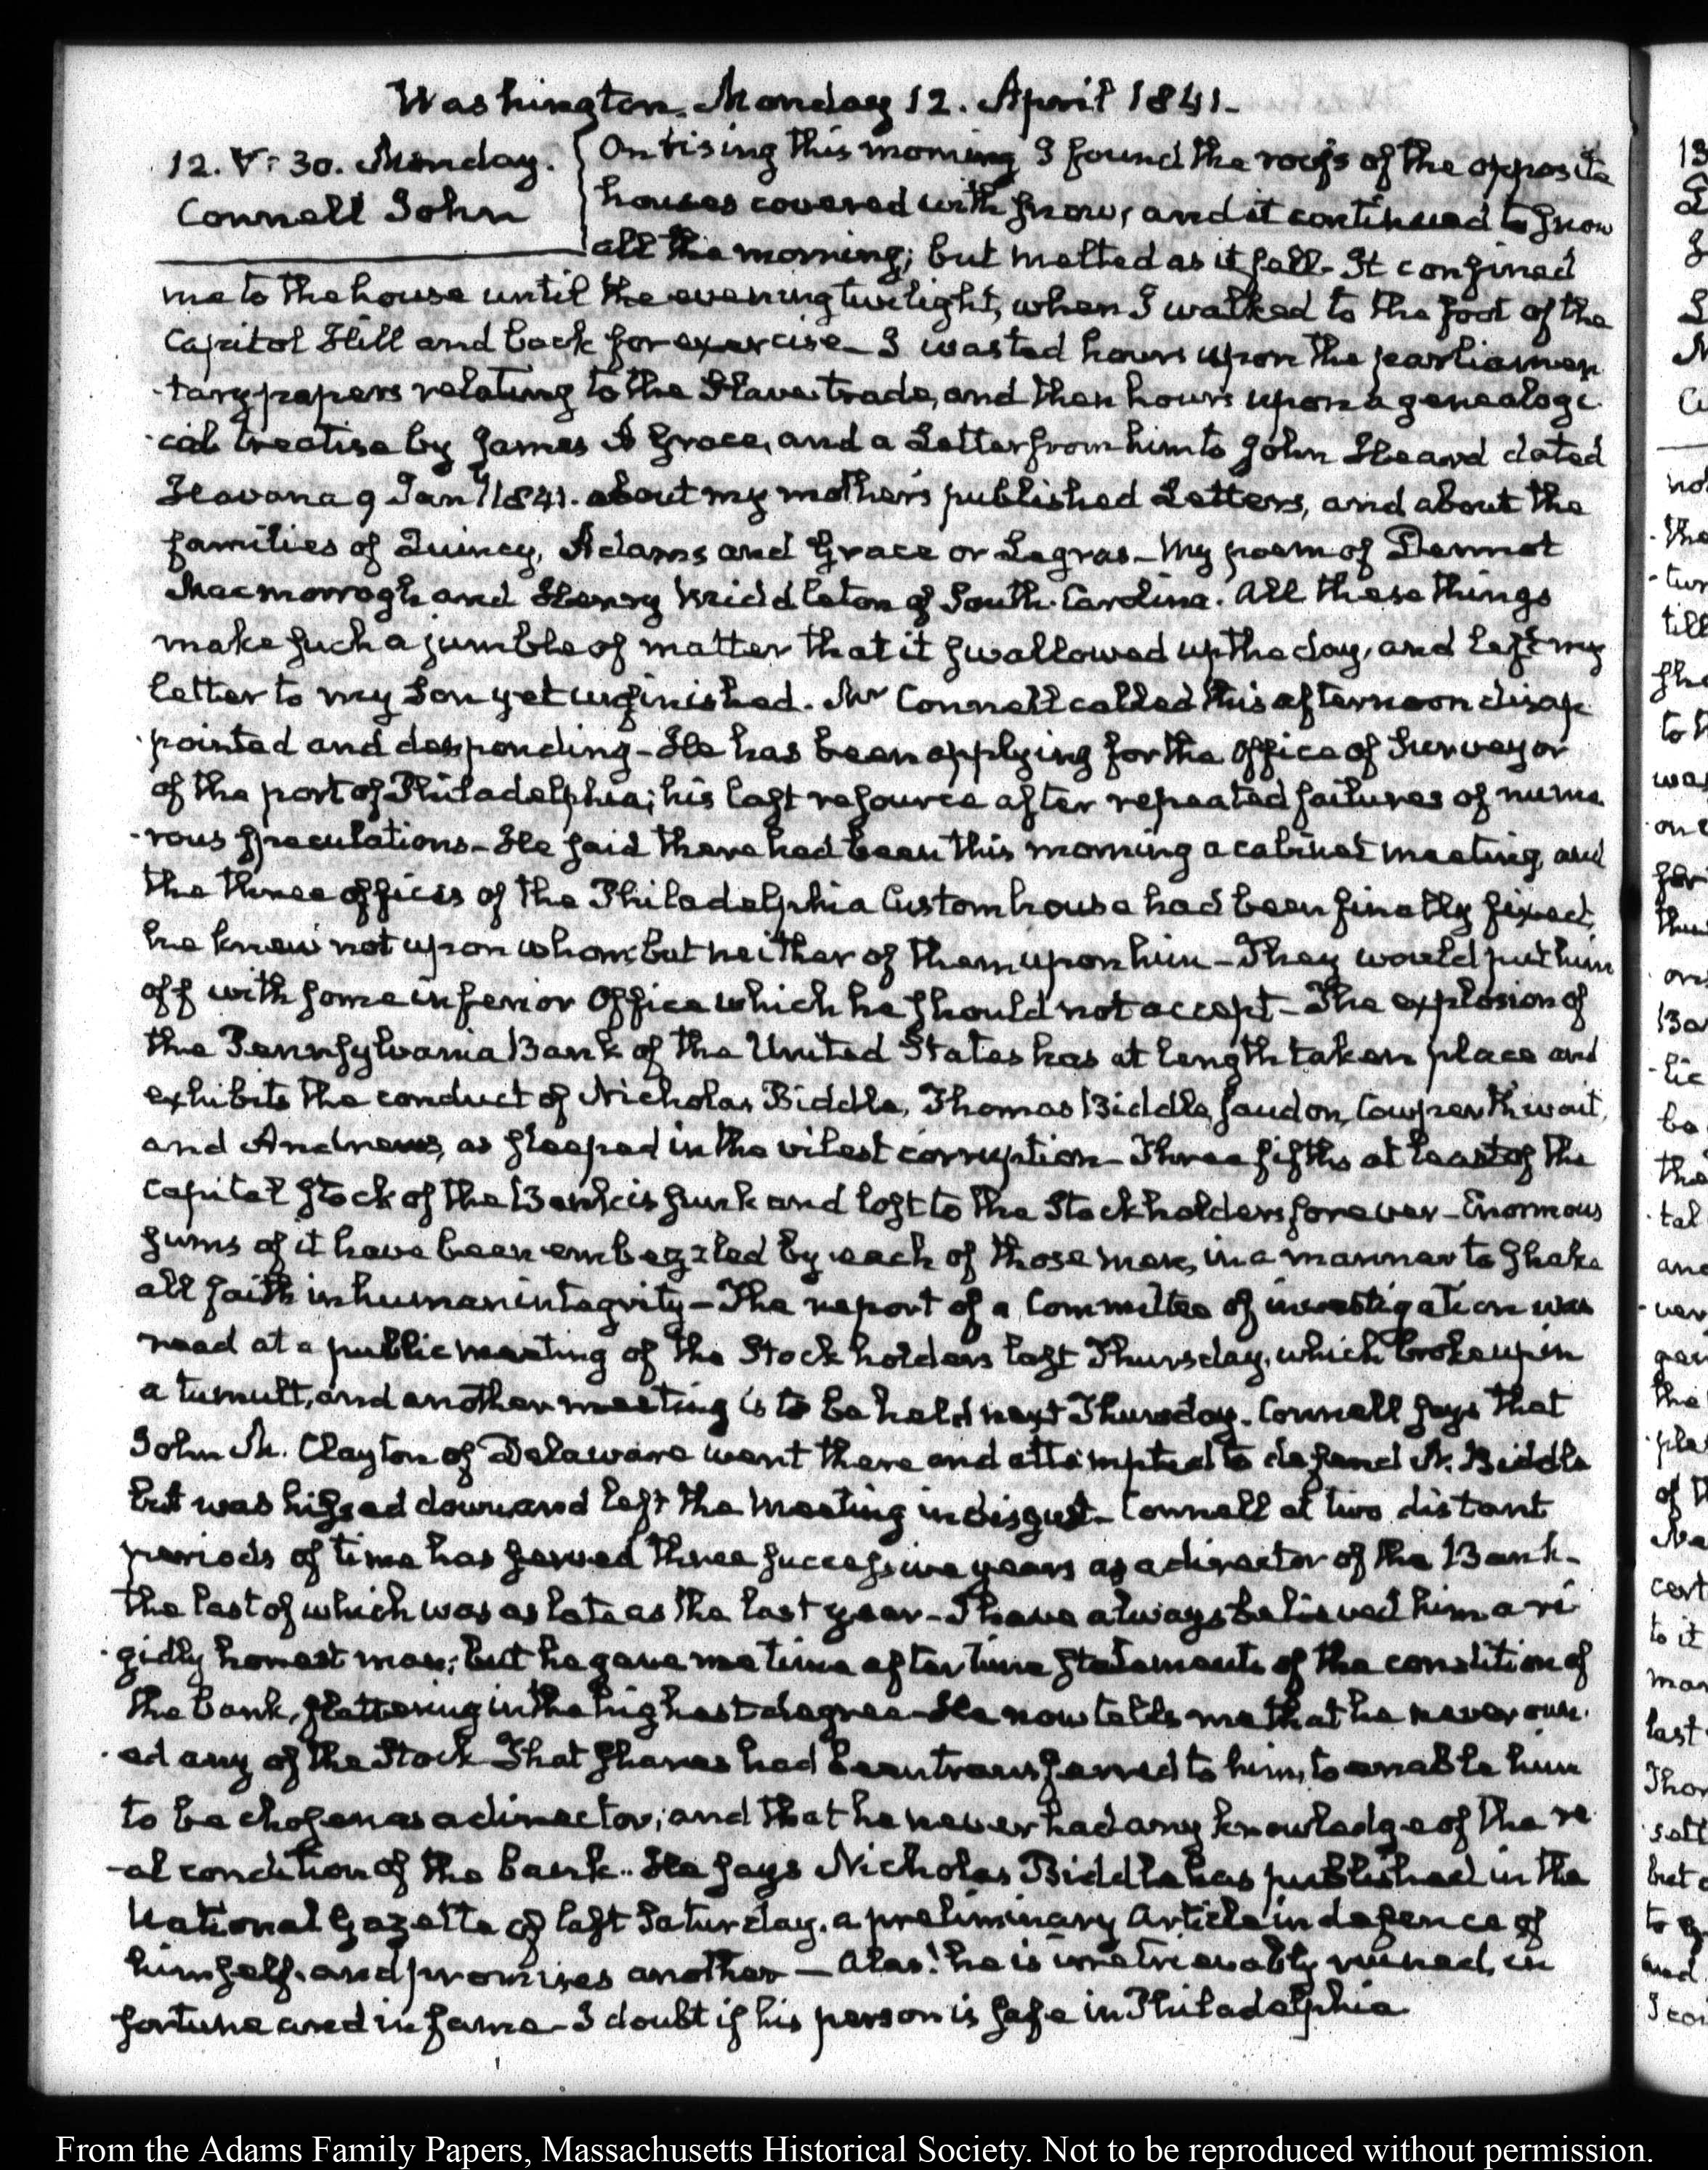 Washington. Monday 12. April 1841.
12. V: 30. Monday.
Connell John
On rising this morning I found the roofs of the opposite
houses covered with snow, and it continued to snow
all the morning; but melted as it fell. It confined
me to the house until the evening twilight, when I walked to the foot of the
Capitol Hill and back for exercise_ I wasted hours upon the parliamen
-tary papers relating to the Slave trade, and then hours upon a genealogi
-cal treatise by James A Grace, and a Letter from him to John Heard dated
Havana 9 Jany. 1841. about my mother's published Letters, and about the
families of Quincy, Adams and Grace or Legras_ My poem of Dermot
Macmorrogh and Henry Middleton of South-Carolina. All these things
make such a jumble of matter that it swallowed up the day, and left my
letter to my Son yet unfinished. Mr Connell called this afternoon disap
-pointed and desponding_ He has been applying for the office of Surveyor
of the port of Philadelphia; his last resource after repeated failures of nume
-rous speculations_ He said there had been this morning a cabinet meeting, and
the three offices of the Philadelphia Customhouse had been finally fixed,
he knew not upon whom but neither of them upon him_ They would put him
off with some inferior Office which he should not accept_ The explosion of
the Pennsylvania Bank of the United States has at length taken place and
exhibits the conduct of Nicholas Biddle, Thomas Biddle, Jaudon, Cowperthwait,
and Andrews, as steeped in the vilest corruption_ Three fifths at least of the
capital stock of the Bank is sunk and lost to the Stockholders forever_ Enormous
sums of it have been embezzled by each of those men, in a manner to shake
all faith in human integrity_ The report of a Committee of investigation was
read at a public meeting of the Stockholders last Thursday, which broke up in
a tumult, and another meeting is to be held next Thursday. Connell says that
John M. Clayton of Delaware went there and attempted to defend N. Biddle
but was hissed down and left the meeting in disgust_ Connell at two distant
periods of time has served three successive years as a director of the Bank_
the last of which was as late as the last year_ I have always believed him a ri
-gidly honest man; but he gave me time after time statements of the condition of
the bank, flattering in the highest degree_ He now tells me that he never own
-ed any of the Stock That shares had been transferred to him, to enable him
to be chosen as a director; and that he never had any knowledge of the re
-al condition of the bank.. He says Nicholas Biddle has published in the
National Gazette of last Saturday, a preliminary Article in defence of
himself, and promises another — Alas! he is irretrievably ruined, in
fortune and in fame_ I doubt if his person is safe in Philadelphia
From the Adams Family Papers, Massachusetts Historical Society. Not to be reproduced without permission.